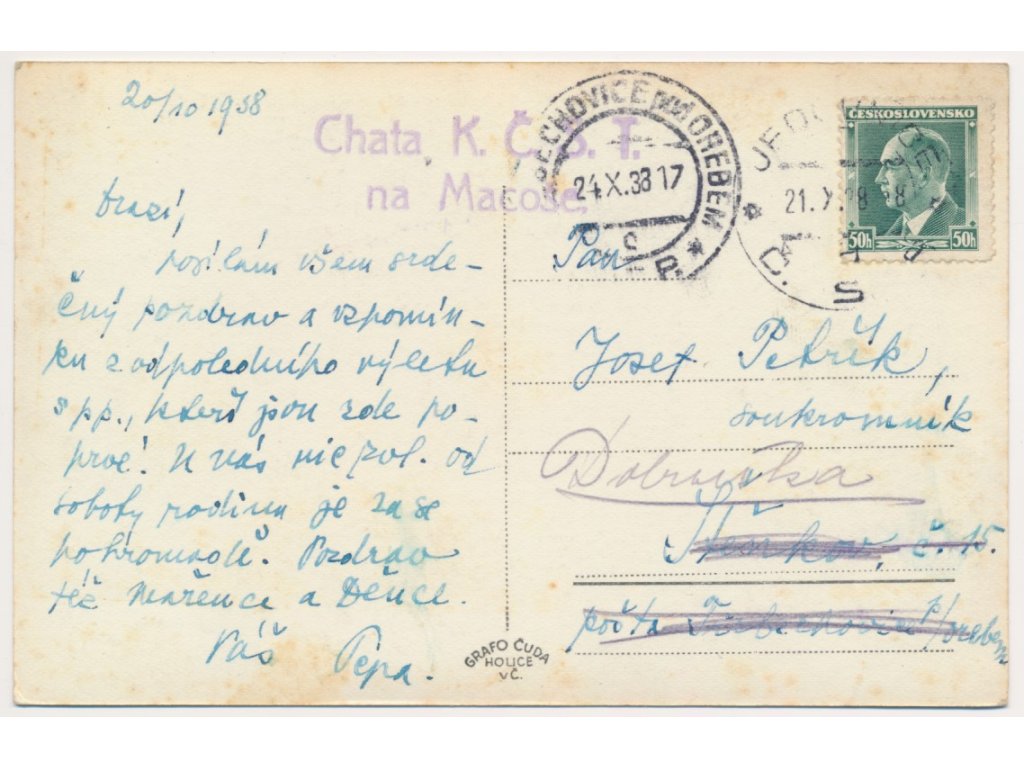 20/10 1938
Chata K. Č. S. T.
na Macoše.
Drazí,
posílám všem srde-
čný pozdrav a vzpomín-
ku z odpoledního výletu
s pp., kteří jsou zde po-
prvé! U vás nic zvl. od
soboty rodina je zase
pohromadě. Pozdrav
též Mařence a Děnce.
Váš Pépa.
GRAFO ČUDA
HOLICE
v Č.
ŘECHOVICE POD OREBEM
24.X.38 17
21.X.38 8
Č. S. R.
ČESKOSLOVENSKO
50h 50h
Pan
Josef Petřík,
soukromník
Dobruška
č. 15.
pošta Třebechovice p/Orebem